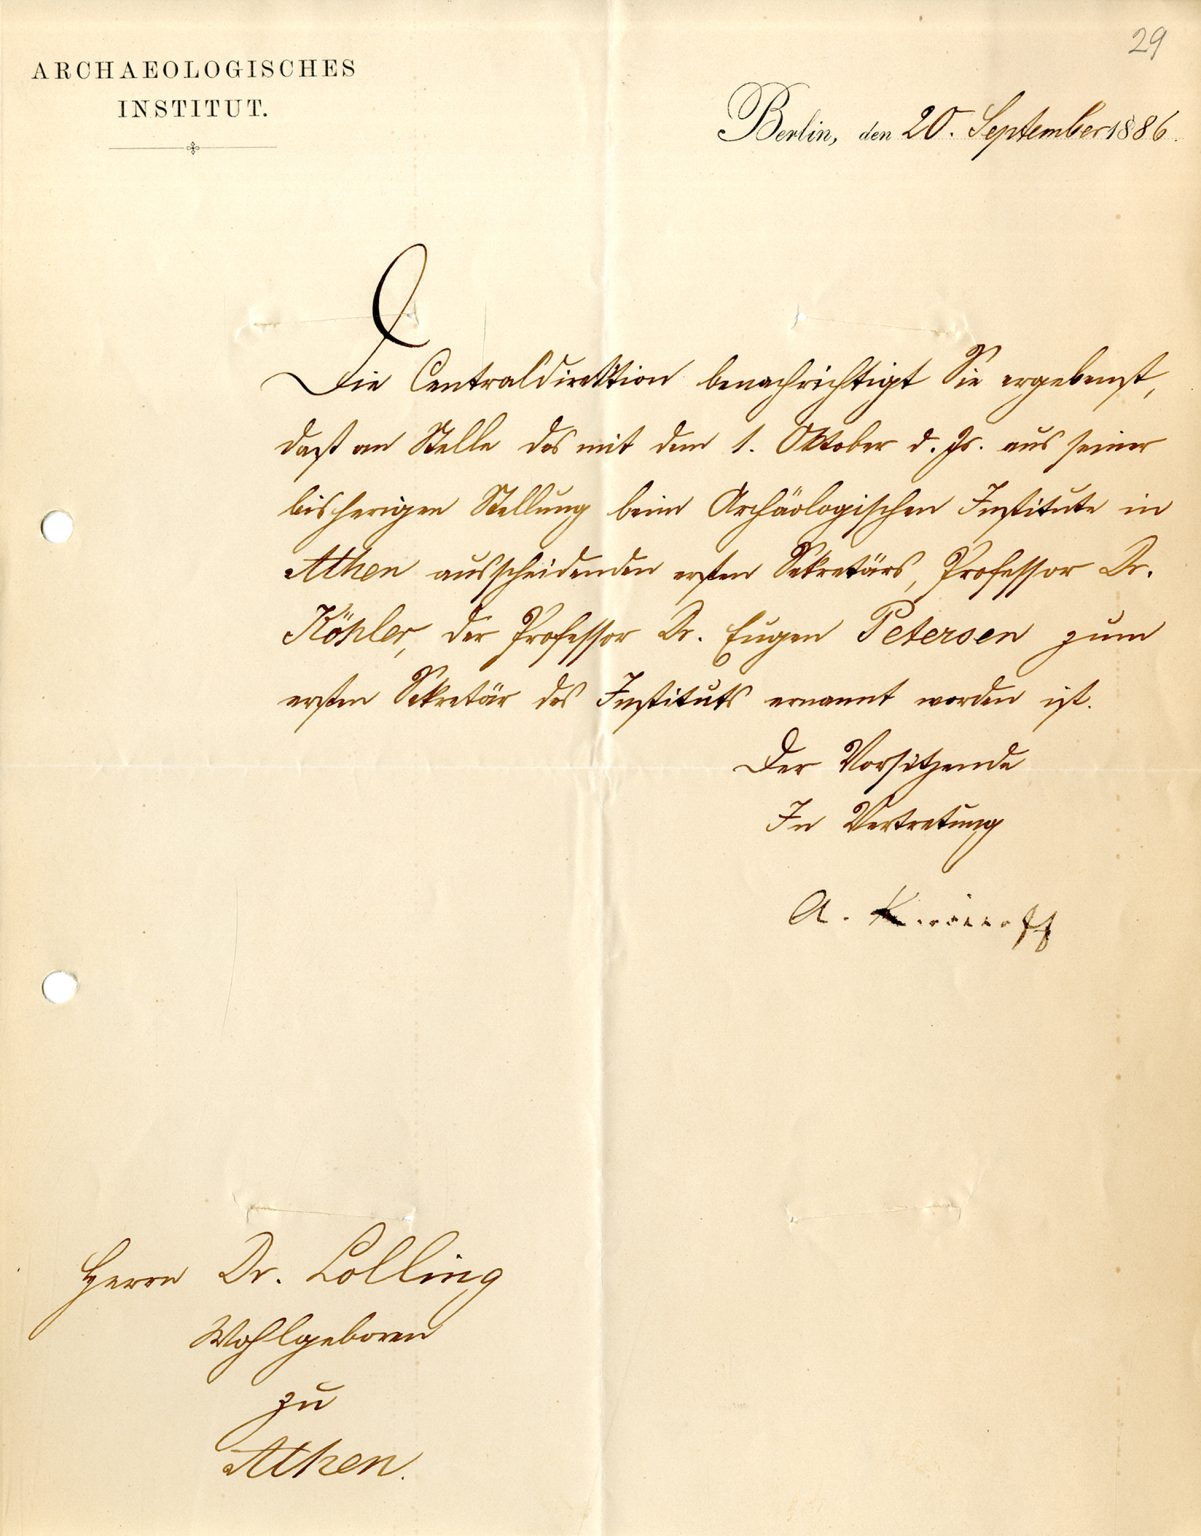 29
ARCHAEOLOGISCHES
INSTITUT.
Berlin, den 20. September 1886.
Die Centraldirektion benachrichtigt Sie ergebenst,
daß an Stelle des mit dem 1. Oktober d. Js. aus seiner
bisherigen Stellung beim Archäologischen Institute in
Athen ausscheidenden ersten Sekretärs, Professor Dr.
Köhler, der Professor Dr. Eugen Petersen zum
ersten Sekretär des Instituts ernannt worden ist.
Der Vorsitzende
In Vertretung
A.
Herrn Dr. Lolling
Wohlgeboren
zu
Athen.